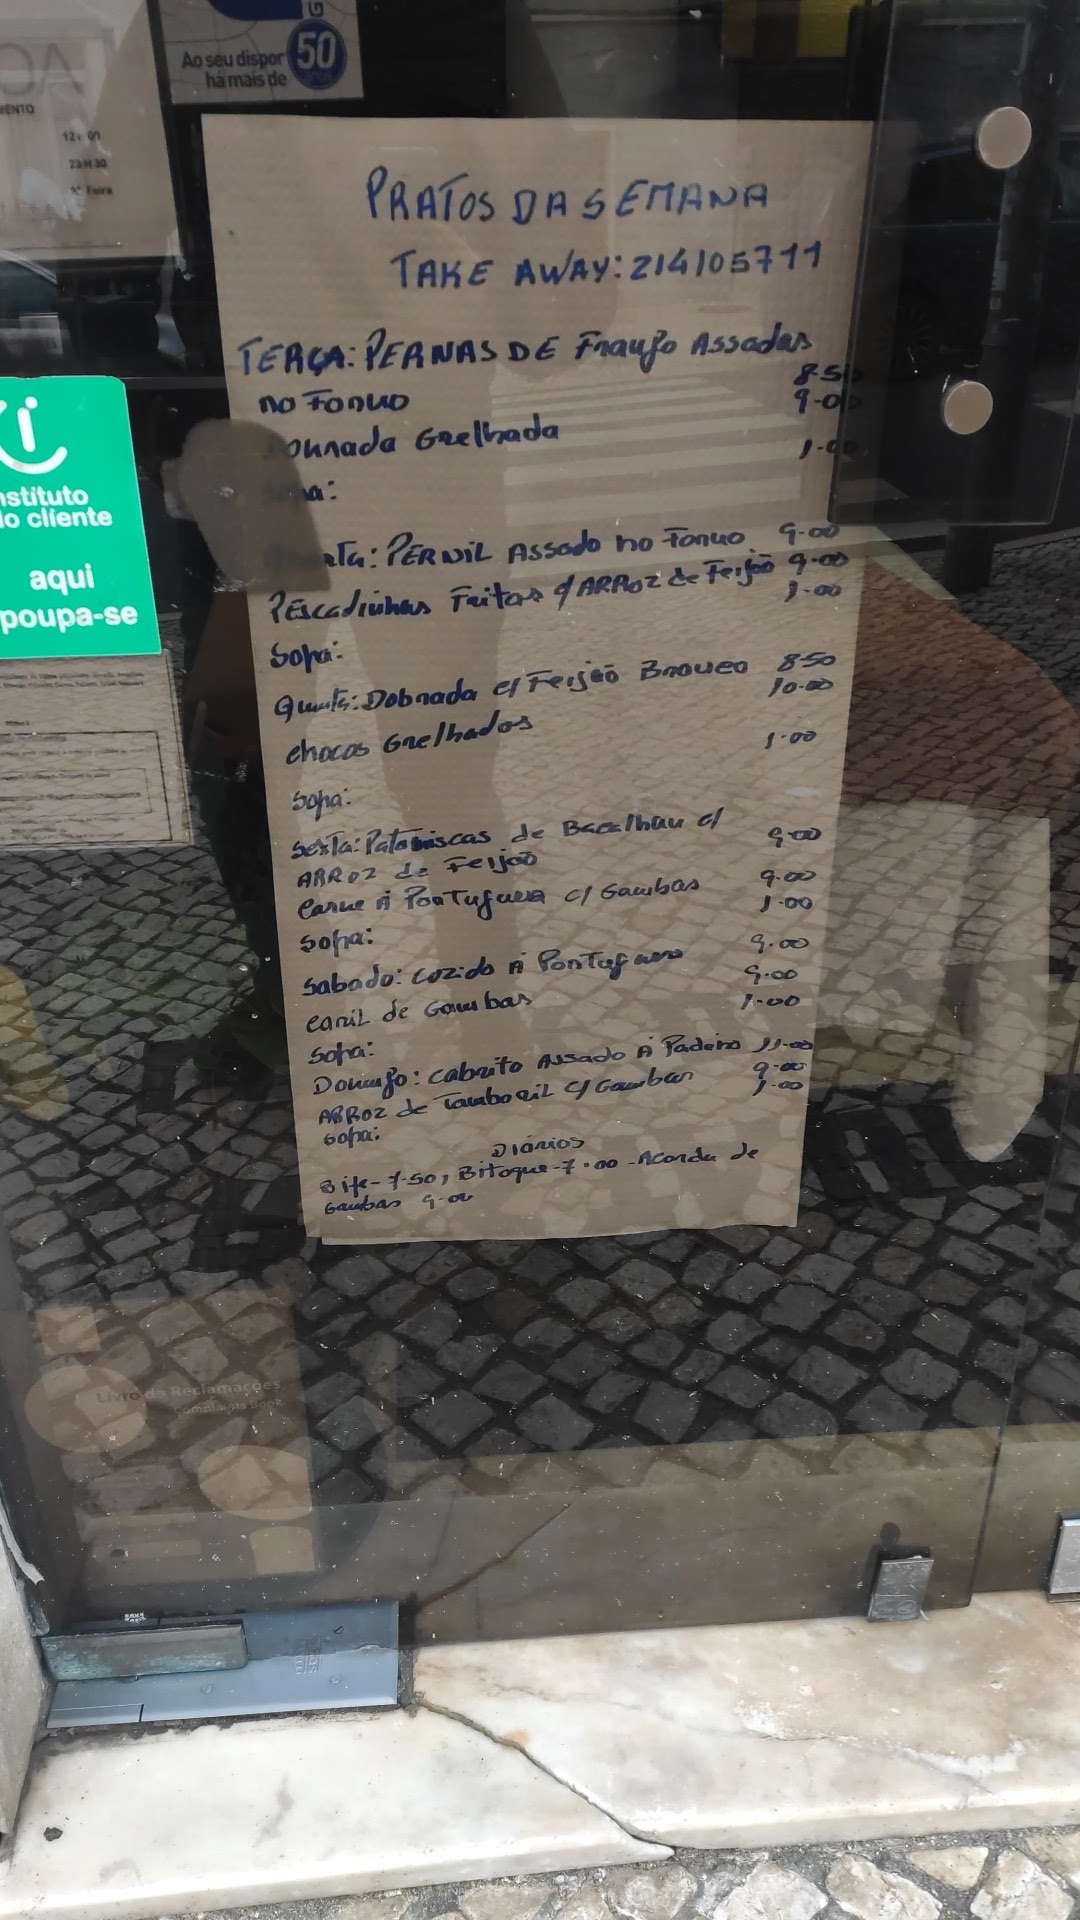 Ao seu dispor
há mais de
50
MENTO
23H30
Feira
PRATOS DA SEMANA
TAKE AWAY: 214105711
TERÇA: PERNAS DE Frango Assadas
no Forno 8.50
9.00
Dourada Grelhada
1.00
Sopa:
Quarta: PERNIL Assado no Forno 9.00
PEScadinhas Fritas c/ ARROZ de Feijão 9.00
1.00
Sopa:
Quinta: Dobrada c/ Feijão Branco 8.50
10.00
chocos Grelhados
1.00
Sopa:
Sexta: Pataniscas de Bacalhau c/
ARROZ de Feijão 9.00
Carne Á Portuguesa c/ Gambas 9.00
1.00
Sopa:
Sabado: Cozido Á Portuguesa 9.00
9.00
Caril de Gambas 1.00
Sopa:
Domingo: Cabrito Assado Á Padeiro 11.00
ARROZ de Tamboril c/ Gambas 9.00
1.00
Sopa:
Diários
Bife - 7.50, Bitoque - 7.00 - Acorda de
Gambas 9.00
nstituto
do cliente
aqui
poupa-se
Livro de Reclamações
Complaints Book